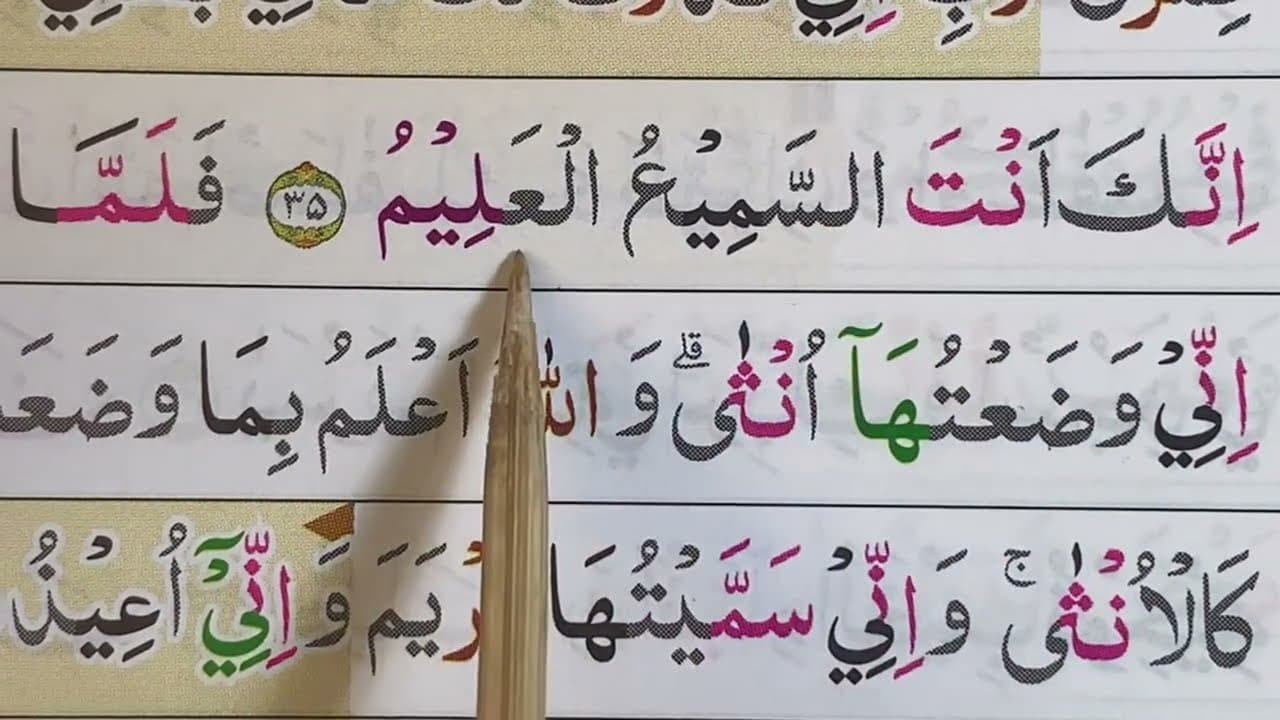 اِنَّكَ اَنْتَ السَّمِيْعُ الْعَلِيْمُ ۝۳۵ فَلَمَّا
اِنِّيْ وَضَعْتُهَآ اُنْثٰى ؕ وَ اَعْلَمُ بِمَا وَضَعَ
كَالْاُنْثٰى ۚ وَ اِنِّيْ سَمَّيْتُهَا وَ اِنِّيْٓ اُعِيْذُ